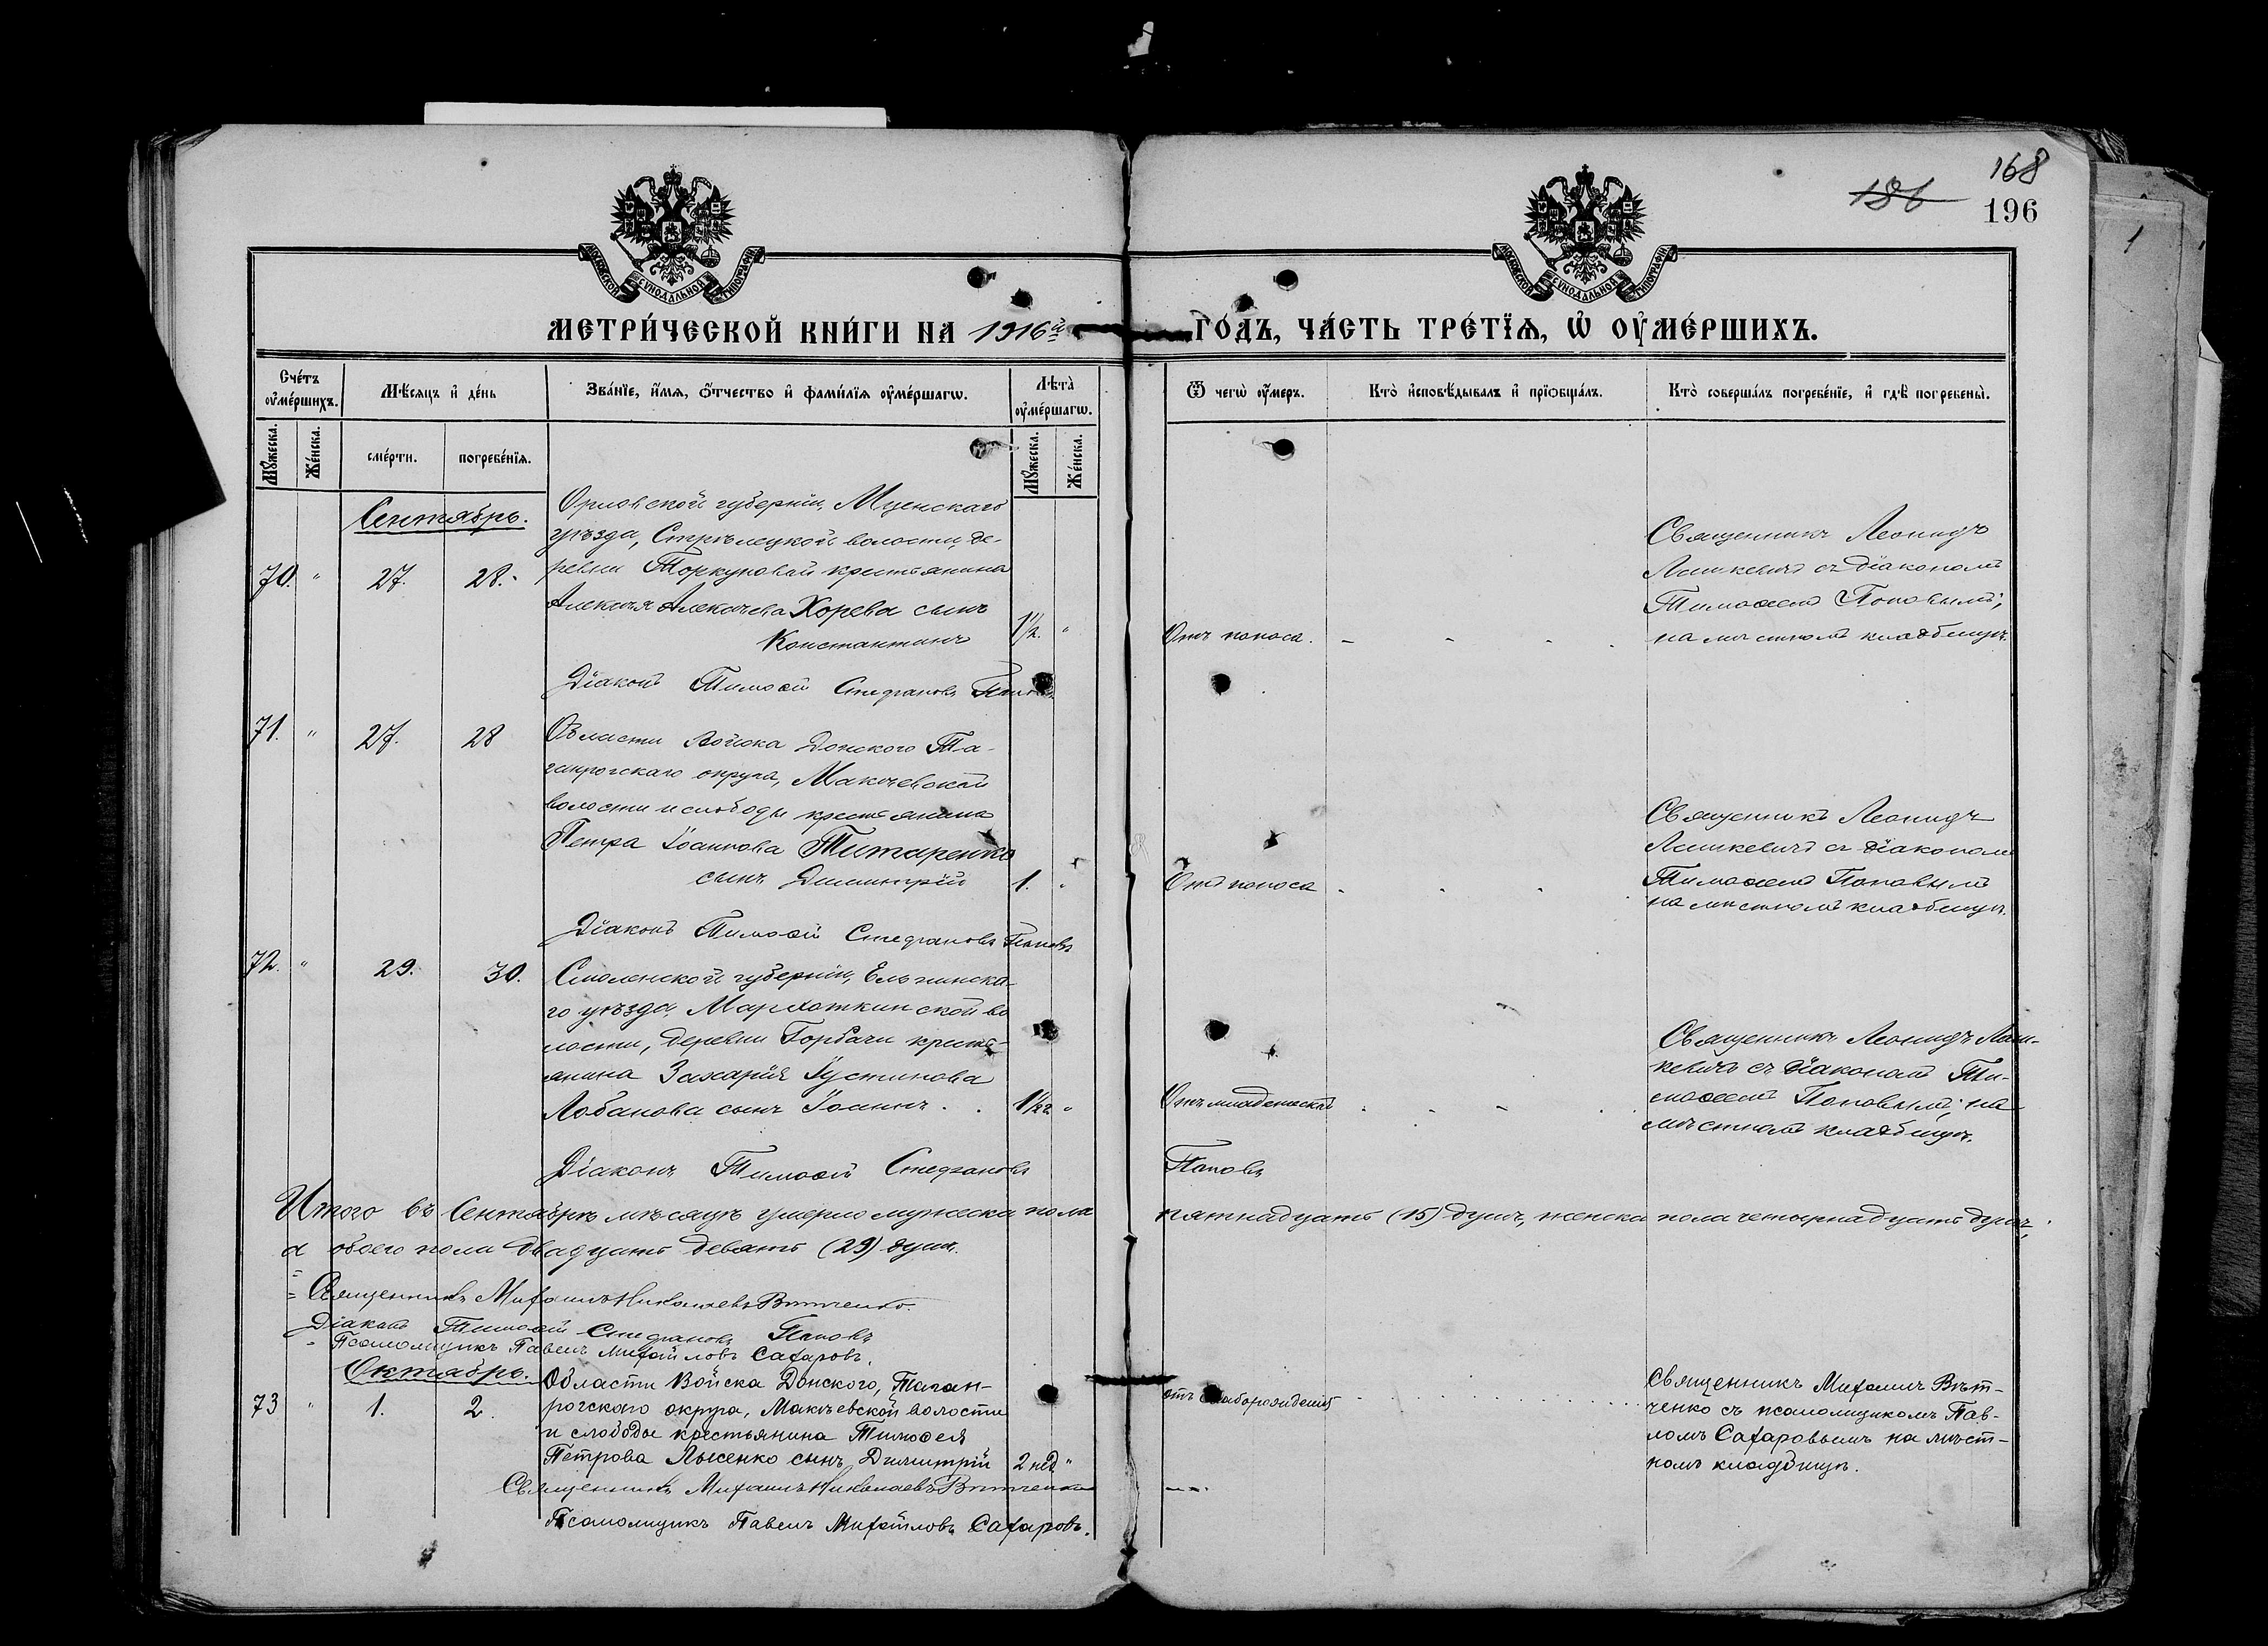 168
186
196
МОСКОВСКОЙ СѴНОДАЛЬНОЙ ТИПОГРАФІИ
МОСКОВСКОЙ СѴНОДАЛЬНОЙ ТИПОГРАФІИ
МЕТРИ́ЧЕСКОЙ КНИ́ГИ НА 1916й ГО́ДЪ, ЧА́СТЬ ТРЕ́ТЇѦ, Ѡ҆ ОУ҆МЕ́РШИХЪ.
Сче́тъ оу҆ме́ршихъ.
Мꙋ́жеска.
Же́нска.
Мѣ́сѧцъ и҆ де́нь
сме́рти.
погребе́нїѧ.
Зва́нїе, и҆́мѧ, ѻ҆́тчество и҆ фами́лїѧ оу҆ме́ршагѡ.
Лѣ́та̀ оу҆ме́ршагѡ.
Мꙋ́жеска.
Же́нска.
Ѿ чегѡ̀ оу҆́меръ.
Кто̀ и҆сповѣ́дывалъ и҆ прїѡбща́лъ.
Кто̀ соверша́лъ погребе́нїе, и҆ гдѣ̀ погребены̀.
Сентябрь.
70. " 27. 28.
Орловской губерніи, Мценскаго
уѣзда, Стрѣлецкой волости, де-
ревни крестьянина
Алексѣя Алексѣева Хорева сынъ
Константинъ 1½. "
Отъ поноса.
Священникъ Леонидъ
Лошкевичъ съ діакономъ
Тимоѳеемъ Поповымъ,
на мѣстномъ кладбищѣ.
Діаконъ Тимоѳей Стефановъ Поповъ
71. " 27. 28
Области Войска Донского Та-
ганрогскаго округа, Макѣевской
волости и слободы крестьянина
Петра Іоаннова Титаренко
сынъ Димитрій 1. "
Отъ поноса
Священникъ Леонидъ
Лошкевичъ съ діакономъ
Тимоѳеемъ Поповымъ
на мѣстномъ кладбищѣ.
Діаконъ Тимоѳей Стефановъ Поповъ
72. " 29. 30.
Смоленской губерніи, Ельнинска-
го уѣзда, Мархоткинской во
лости, деревни Горбачи кресть-
янина Захарія Іустинова
Лобанова сынъ Іоаннъ "
Отъ младенской
Священникъ Леонидъ Лош-
кевичъ съ діакономъ Ти-
моѳеемъ Поповымъ, на
мѣстномъ кладбищѣ.
Діаконъ Тимоѳей Стефановъ Поповъ
Итого въ Сентябрѣ мѣсяцѣ умерло мужеска пола пятнадцать (15) душъ, женска пола четырнадцать душъ,
а обоего пола двадцать девять (29) душъ.
Священникъ Михаилъ Николаевъ Вѣтченко.
Діаконъ Тимоѳей Стефановъ Поповъ
Псаломщикъ Павелъ Михайловъ Сахаровъ.
Октябрь.
73 " 1. 2.
Области Войска Донского, Таган-
рогскаго округа, Макѣевской волости
и слободы крестьянина Тимоѳея
Петрова Лысенко сынъ Димитрій 2 нед. "
отъ слаборожденія
Священникъ Михаилъ Вѣт-
ченко съ псаломщикомъ Пав-
ломъ Сахаровымъ на мѣст-
номъ кладбищѣ.
Священникъ Михаилъ Николаевъ Вѣтченко
Псаломщикъ Павелъ Михайловъ Сахаровъ.